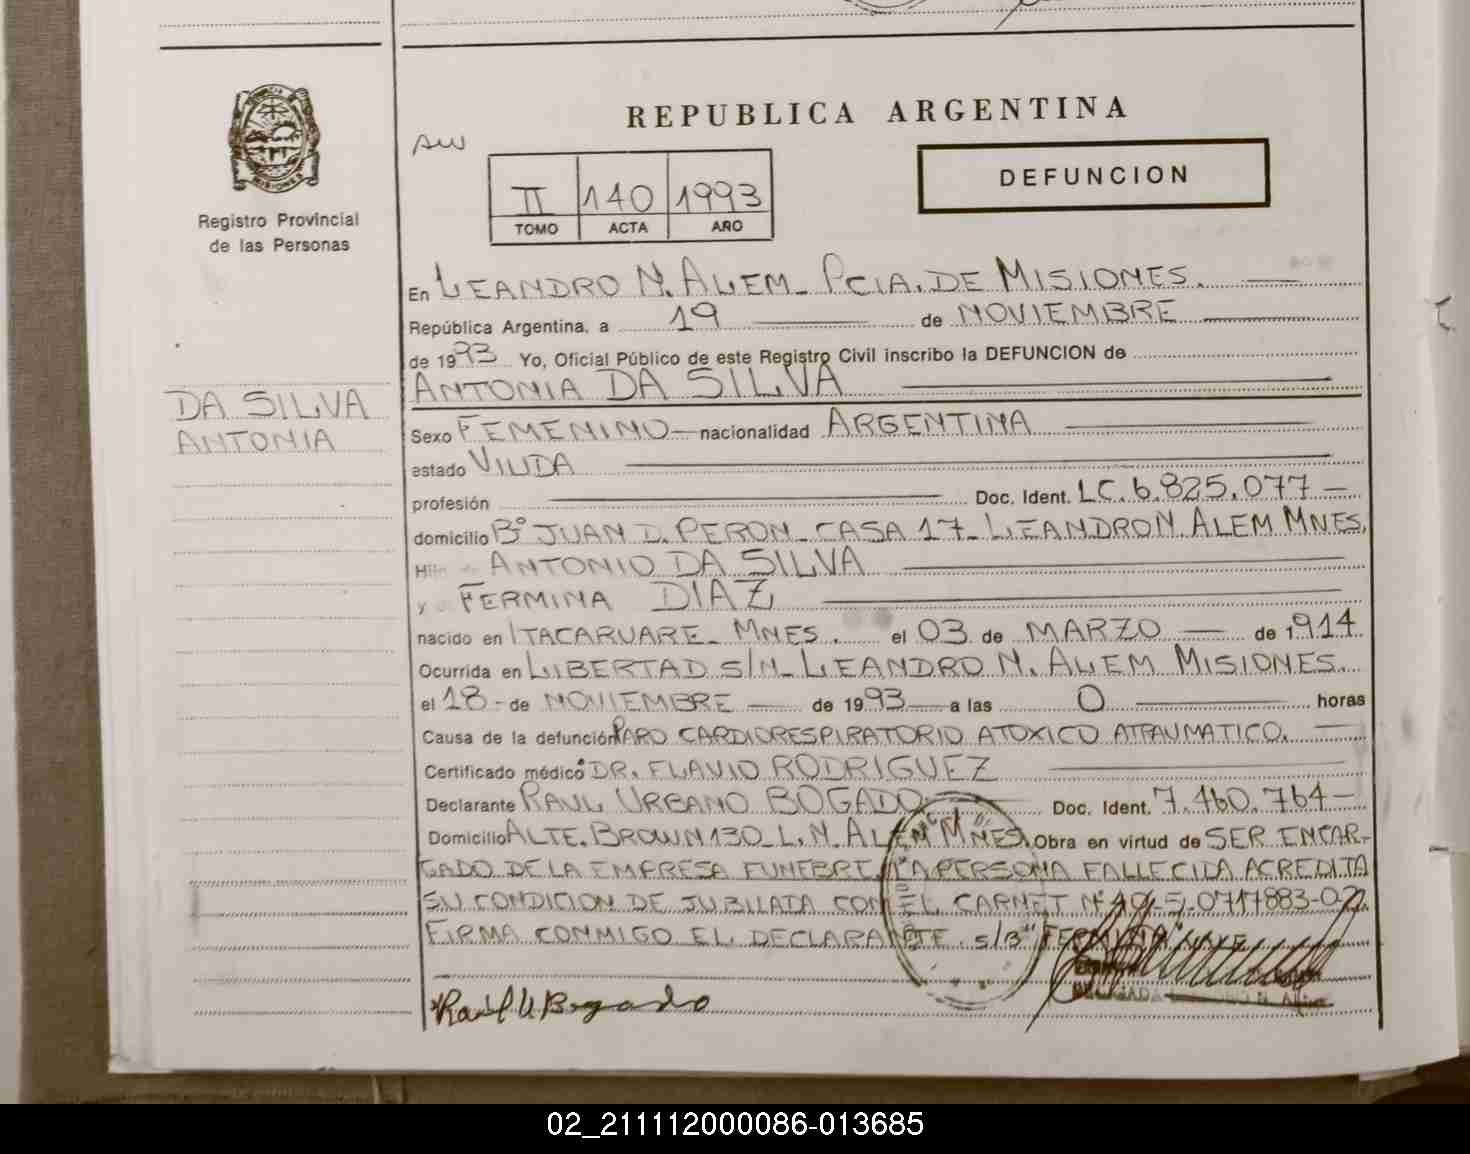 REPUBLICA ARGENTINA
AW
DEFUNCION
II 140 1993
TOMO ACTA AÑO
MISIONES
Registro Provincial
de las Personas
En LEANDRO N. ALEM - PCIA. DE MISIONES.
República Argentina, a 19 de NOVIEMBRE
de 1993 Yo, Oficial Público de este Registro Civil inscribo la DEFUNCION de
ANTONIA DA SILVA
DA SILVA
ANTONIA
Sexo FEMENINO nacionalidad ARGENTINA
estado VIUDA
profesión Doc. Ident. LC. 6.825.077
domicilio Bº JUAN D. PERON - CASA 17 - LEANDRO N. ALEM MNES.
Hij ANTONIO DA SILVA
y FERMINA DIAZ
nacido en ITACARUARE - MNES. el 03 de MARZO de 1914
Ocurrida en LIBERTAD S/N - LEANDRO N. ALEM MISIONES.
el 18 de NOVIEMBRE de 1993 a las 0 horas
Causa de la defunción PARO CARDIORESPIRATORIO ATOXICO ATRAUMATICO.
Certificado médico DR. FLAVIO RODRIGUEZ
Declarante RAUL URBANO BOGADO Doc. Ident. 7.460.764
Domicilio ALTE. BROWN 130 - L. N. ALEM MNES. Obra en virtud de SER ENCAR-
GADO DE LA EMPRESA FUNEBRE. LA PERSONA FALLECIDA ACREDITA
SU CONDICION DE JUBILADA CON EL CARNET Nº
FIRMA CONMIGO EL DECLARANTE. S/B "FERMINA" VALE
Raúl U Bogado
02_211112000086-013685